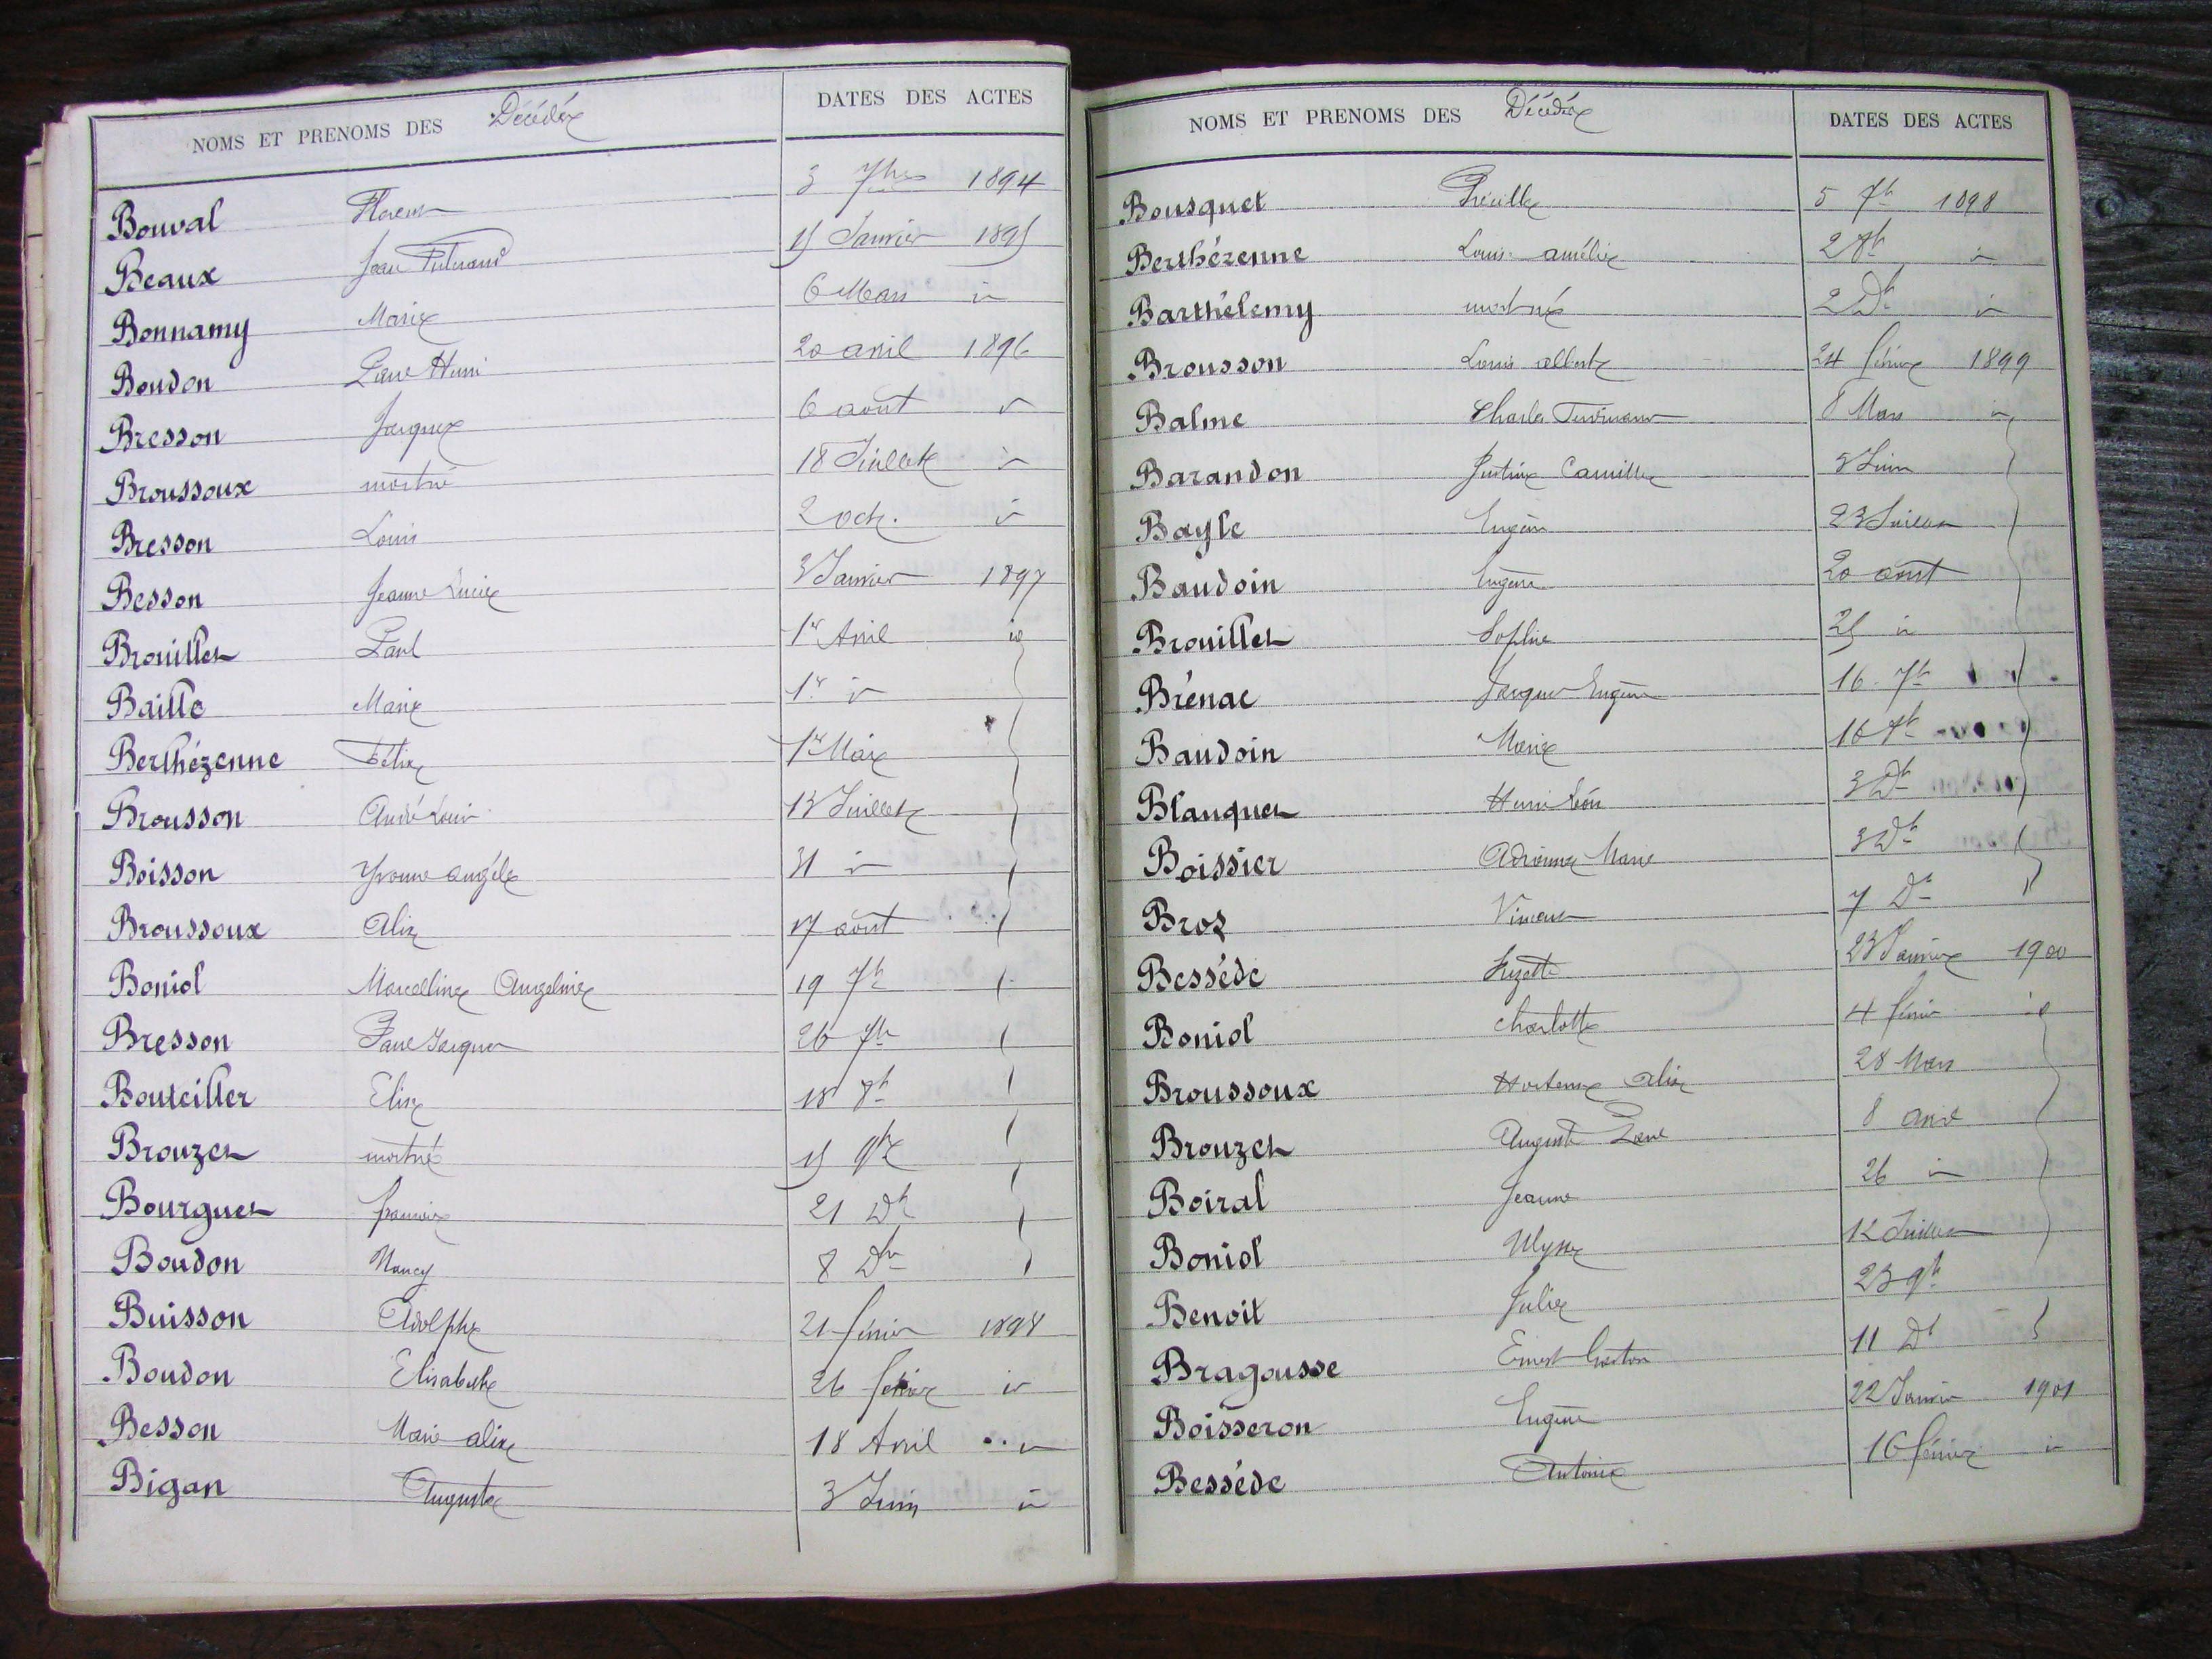 NOMS ET PRENOMS DES Décédés DATES DES ACTES
Bouval Florent 3 7bre 1894
Beaux Jean Fulcrand 15 Janvier 1895
Bonnamy Marie 6 Mars id
Boudon Paul Henri 20 avril 1896
Bresson Jacques 6 août id
Broussoux mortné 18 Juillet id
Bresson Louis 2 oct. id
Besson Jeanne Lucie 3 Janvier 1897
Brouillet Paul 1er Avril id
Baille Marie 1er id
Berthézenne Félix 1er Mai
Brousson André Louis 13 Juillet
Boisson Yvonne angèle 31 id
Broussoux Alix 17 août
Boniol Marcelline Angeline 19 7b
Bresson Paul Jacques 26 7b
Bouteiller Elise 18 8b
Brouzet mortné 15 9b
Bourguet 21 Db
Boudon Nancy 8 Db
Buisson Adolphe 21 févrie 1898
Boudon Elisabeth 26 février id
Besson Marie alix 18 Avril id
Bigan Auguste 3 Juin id
NOMS ET PRENOMS DES Décédés DATES DES ACTES
Bousquet 5 7b 1898
Berthézenne Louis amélie 2 8b id
Barthélemy mortné 2 Db id
Brousson Louis albert 24 février 1899
Balme Charles Ferdinand 8 Mars id
Barandon Justine Camille 3 Juin
Bayle Eugène 23 Juillet
Baudoin Eugène 20 août
Brouillet Sophie 25 id
Brénac Jacques Eugène 16 7b
Baudoin Marie 16 8b
Blanquet Henri Léon 3 Db
Boissier Adrienne Marie 3 Db
Bros Vincent 7 Db
Bessède Suzette 23 Janvier 1900
Boniol Charlotte 4 févrie id
Broussoux Hortense Alix 28 Mars
Brouzet Auguste Paul 8 avril
Boiral Jeanne 26 id
Boniol Ulysse 12 Juillet
Benoit Julie 23 9b
Bragousse Ernest Gaston 11 Db
Boisseron Eugène 22 Janvie 1901
Bessède Antoine 16 février id